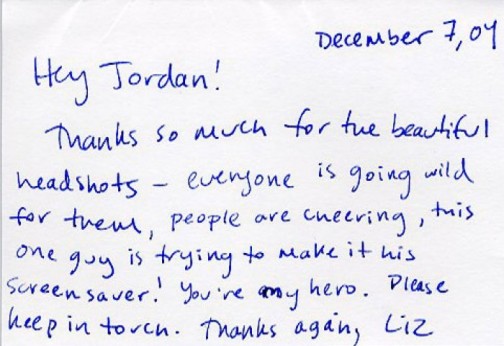 December 7, 04
Hey Jordan!
Thanks so much for the beautiful
headshots – everyone is going wild
for them, people are cheering, this
one guy is trying to make it his
screensaver! You're my hero. Please
keep in touch. Thanks again, Liz